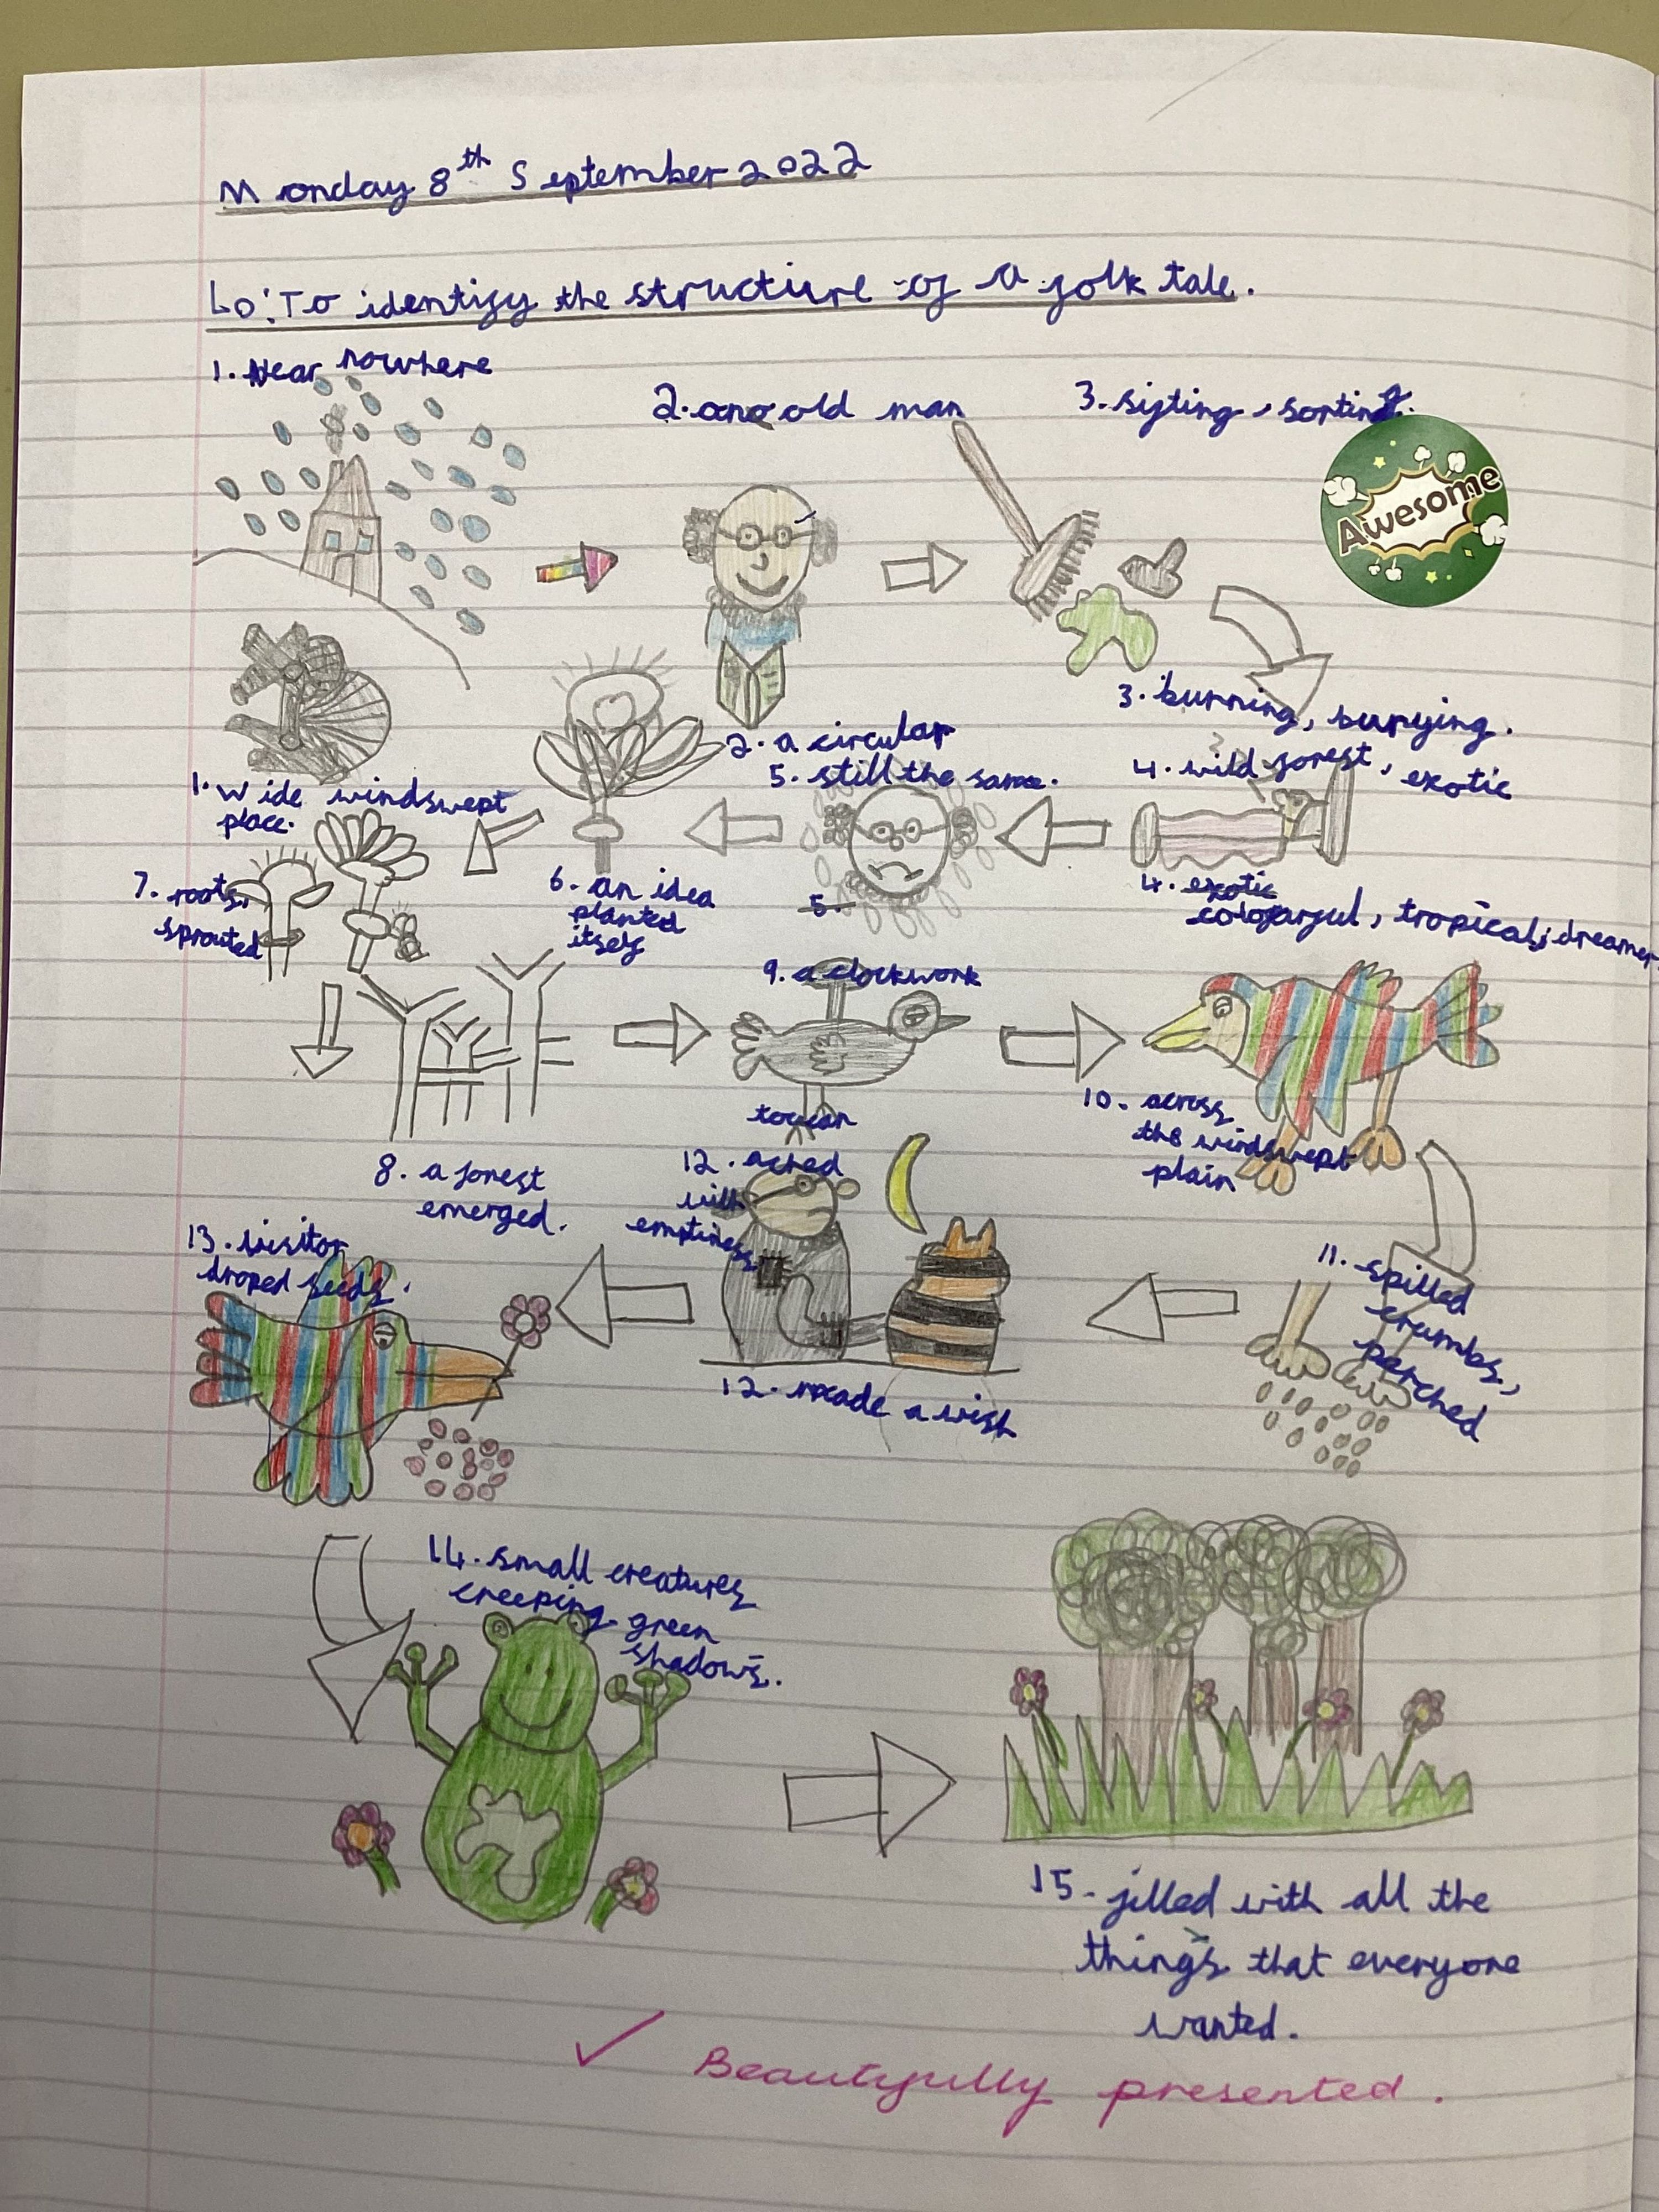 Monday 8th September 2022
LO: To identify the structure of a folk tale.
1. Near nowhere
2. an old man
3. sifting, sorting.
Awesome
3. burning, burying.
2. a circular
5. still the same.
4. wild forest, exotic
1. Wide windswept
place.
4. exotic
colourful, tropical, dreamer
5.
6. an idea
planted
itself
7. roots,
sprouted
9. a clockwork
toucan
10. across
the windswept
plain
8. a forest
emerged.
12. ached
with
emptiness
11. spilled
crumbs,
perched
13. visitor
droped seeds.
12. made a wish
14. small creatures
creeping green
shadows.
15. filled with all the
things that everyone
wanted.
✓ Beautyfully presented.